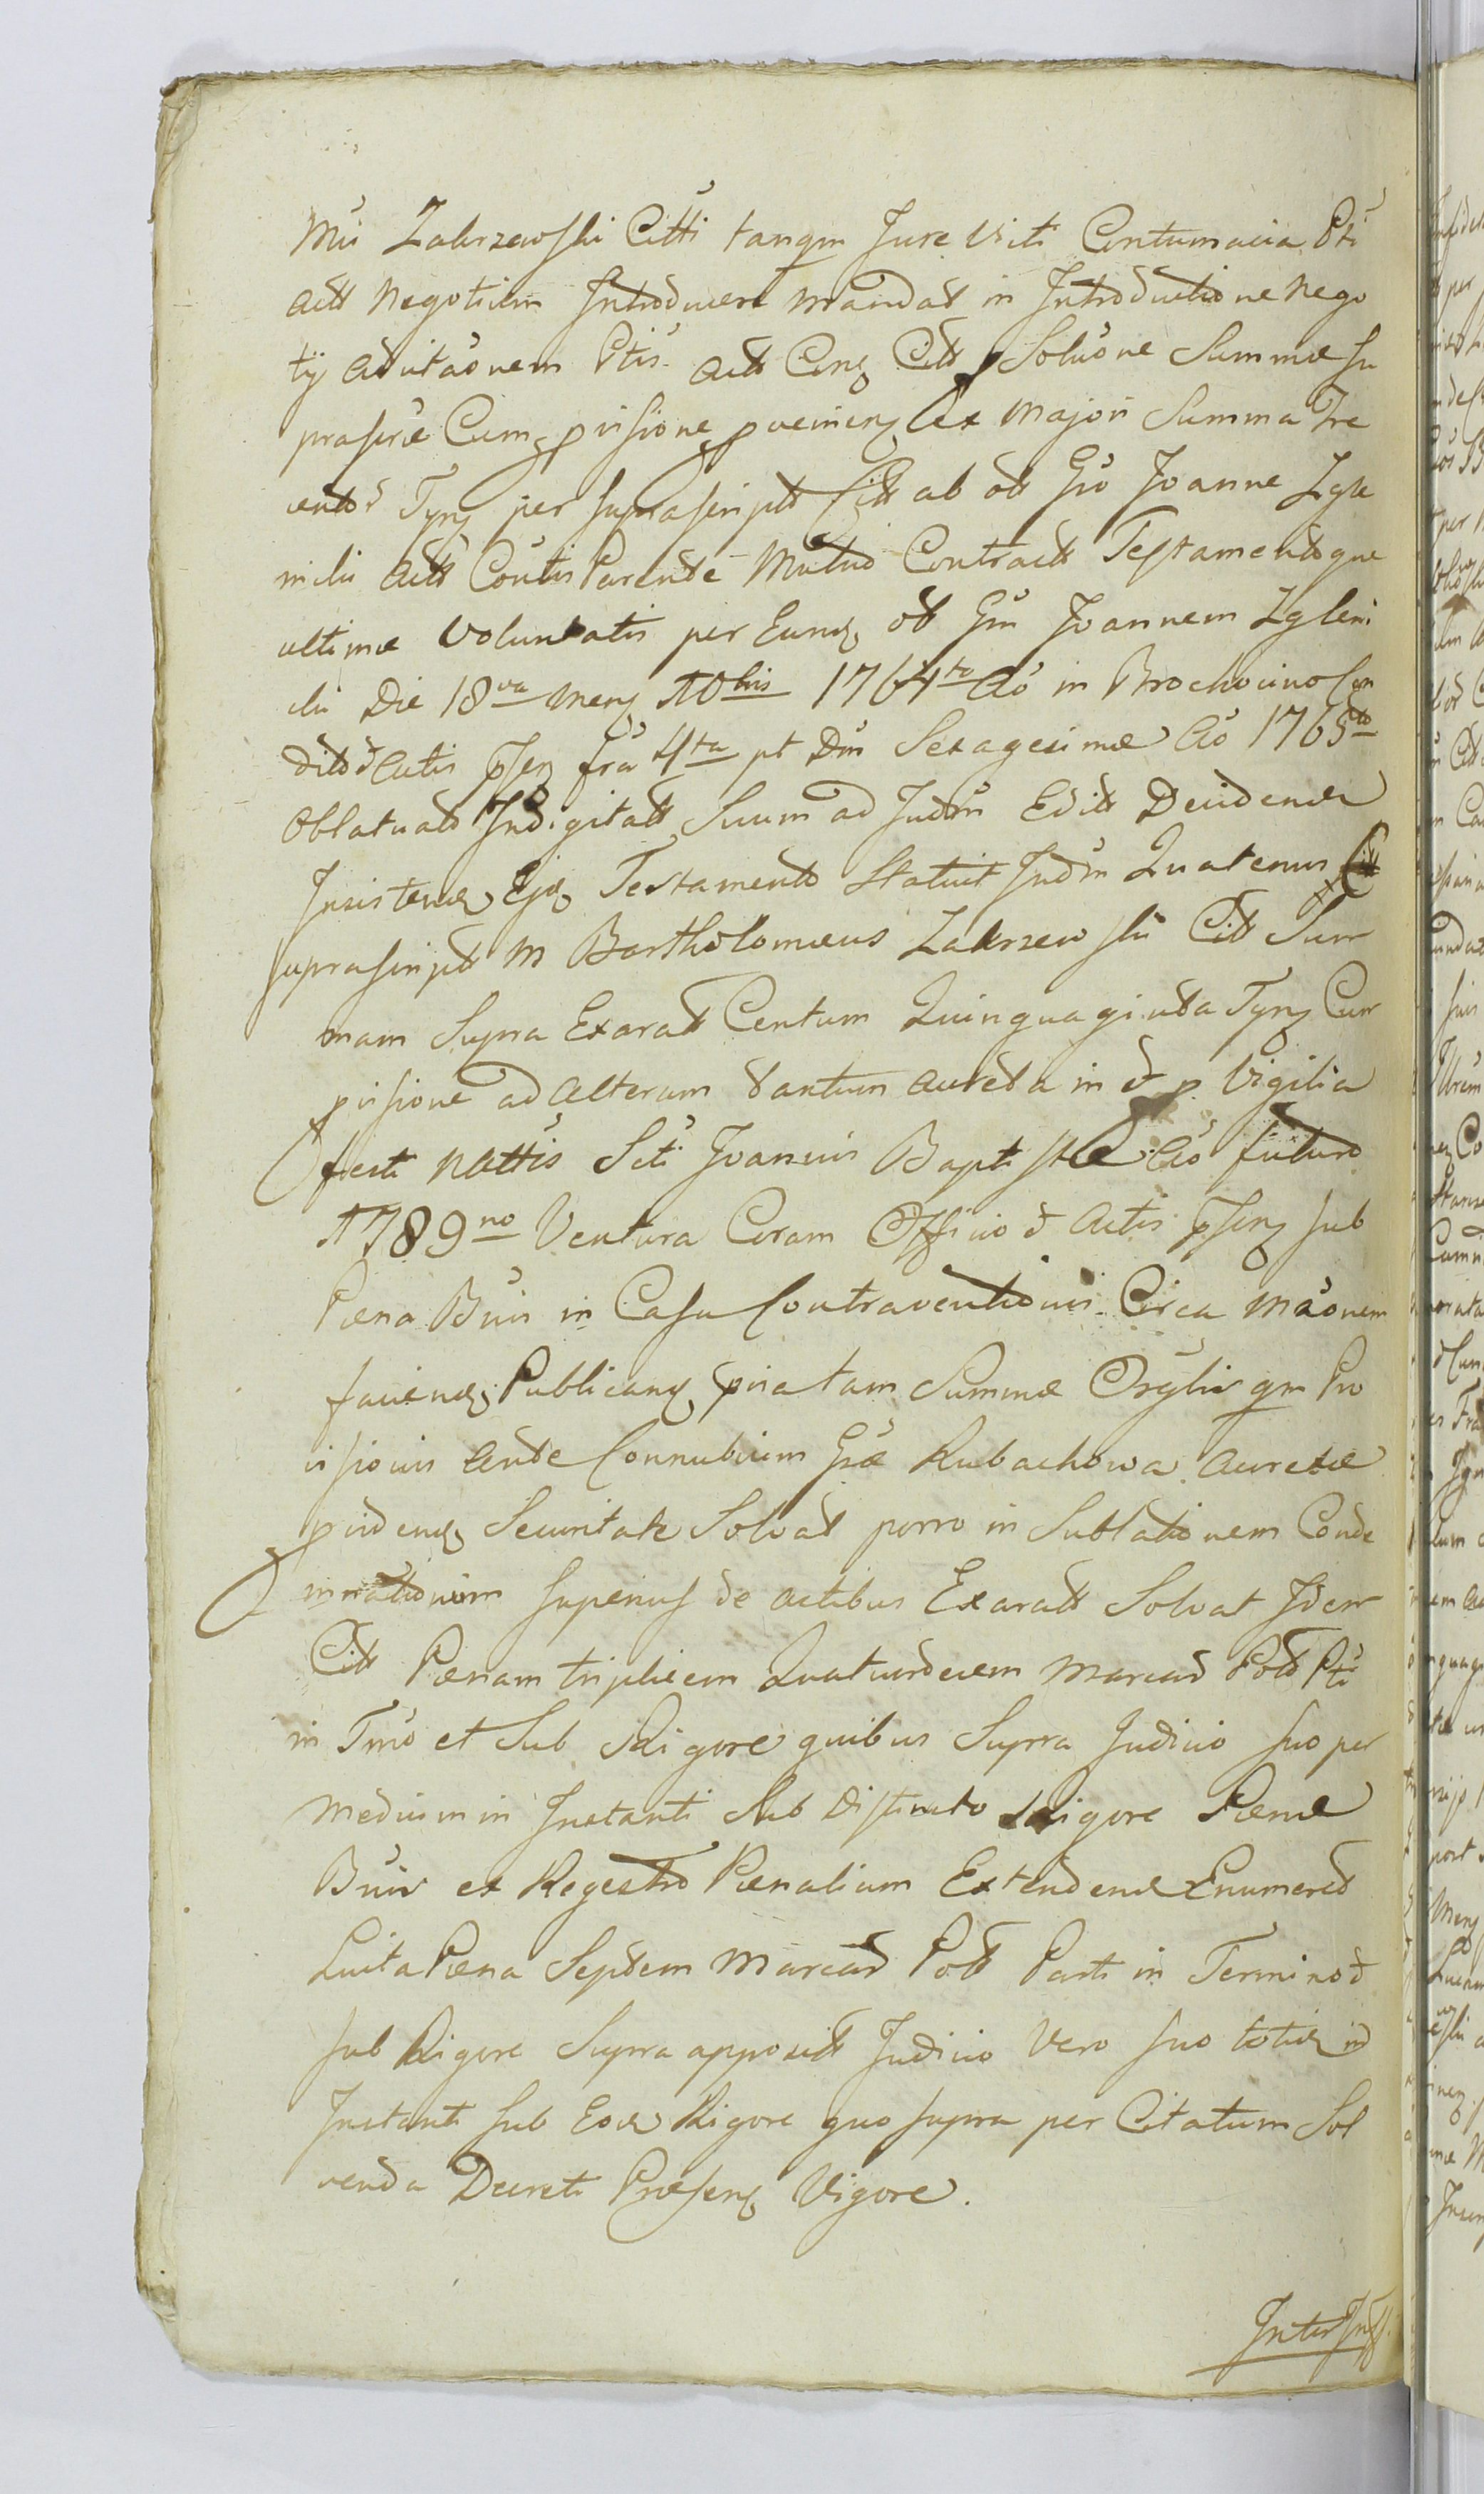 Mu Zakrzewski Citti tanqm Jure Victi Contumacia Pti
actt Negotium Introducere mandat in Introductione Nego
tij ad citaonem Ptis actt Conq Citt Soluone Summæ su
prascræ Cumq pvisione pvenienq ex majori Summa Tre
cento Tynf per suprascriptt Citt ab ott Gso Joanne Zgle
nicki Actt Coutis Parente Mutuo Contractt Testamentoque
ultimæ Voluntatis per Eundq ott Gm Joannem Zgleni
cki Die 18va Menq Xbris 1764to Ao in Brochocino Con
dito d Actis pñsenq fra 4ta pt Dm Sexagesimæ Ao 1765to
Oblatuatt Indigitatt Suum ad Judm Edict Decidendt
Insistendq Ejdq Testamento Statuit Judm Quatenus
suprascriptt M Bartholomæus Zakrzewski Citt Sum
mam Supra Exaratt Centum Quinquaginta Tynf Cum
pvisione ad Alterum tantum aucta in d p. Vigilia
festi Nattis Scti Joannis Baptistæ Ao futuro
1789no Ventura Coram Officio d Actis pñsenq sub
Pæna Buis in Casu Contraventionis Circa maonem
faciendq Publicanq piratam Summæ Orglis qm Pro
visionis Ante Connubium Gsæ Rubachowa Auctæ
pvidendq Securitate Solvat porro in Sublationem Conde
mnationum superius de actibus Exaratt Solvat Idem
Citt Pænam triplicem Quatuordecem Marcar Poltt Pti
in Tmo et Sub Rigore quibus Supra Judicio suo per
Medium in Instanti Sub Districto Rigore Pænæ
Buis ex Regestro Pænalium Extendend Enumerat
Luita Pæna Septem Marcar Poltt Parti in Termino d
sub Rigore Supra apposito Judicio Vero suo totid in
Instanti sub Eod Rigore quo supra per Citatum Sol
venda Decreti Præsenq Vigore.
Inter Inff.